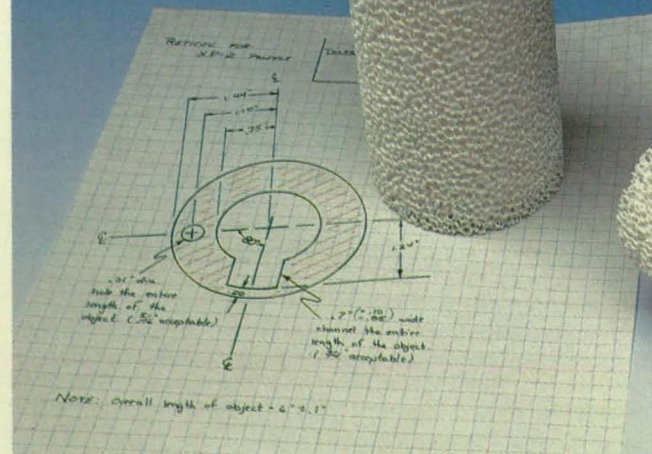 RETICULE FOR
XP-2 PROJECT
℄
1.44"
.75"
℄
.31" dia.
hole the entire
length of the
object. (5/16" acceptable)
.7" (+.10 -.05) wide
channel the entire
length of the object.
acceptable)
℄
NOTE: overall length of object = 6" ± .1"